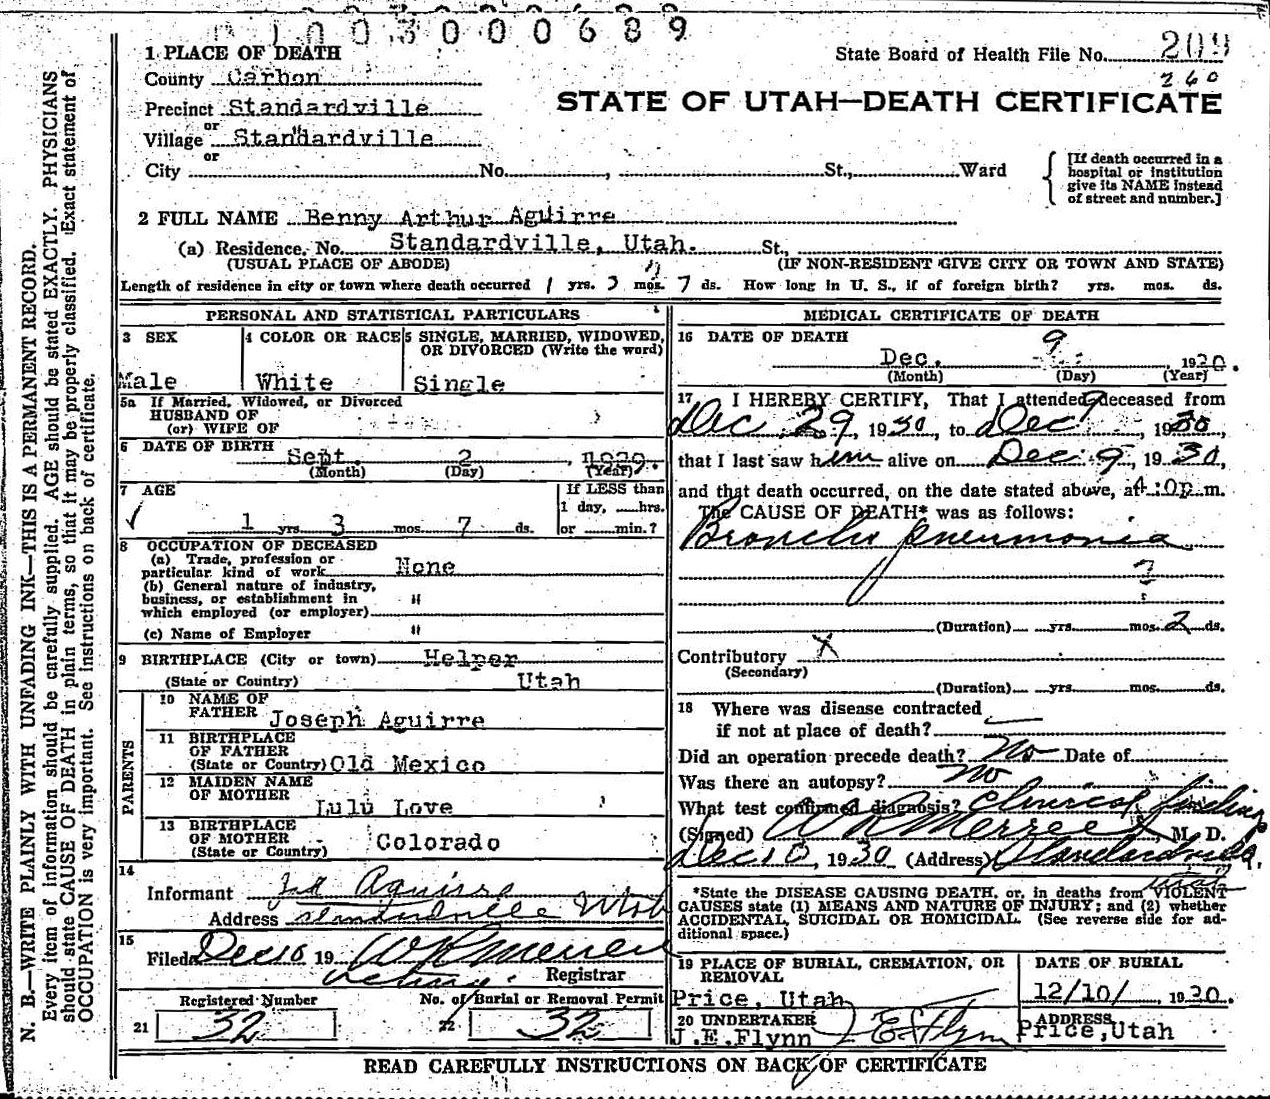 003000689
1 PLACE OF DEATH
State Board of Health File No. 209
260
County Carbon
STATE OF UTAH—DEATH CERTIFICATE
Precinct Standardville
or
Village Standardville
or
City No. , St., Ward
[If death occurred in a
hospital or institution
give its NAME instead
of street and number.]
2 FULL NAME Benny Arthur Aguirre
(a) Residence. No. Standardville, Utah. St.,
(USUAL PLACE OF ABODE) (IF NON-RESIDENT GIVE CITY OR TOWN AND STATE)
Length of residence in city or town where death occurred 1 yrs. 3 mos. 7 ds. How long in U. S., if of foreign birth? yrs. mos. ds.
PERSONAL AND STATISTICAL PARTICULARS
3 SEX
Male
4 COLOR OR RACE
White
5 SINGLE, MARRIED, WIDOWED,
OR DIVORCED (Write the word)
Single
5a If Married, Widowed, or Divorced
HUSBAND OF
(or) WIFE OF
6 DATE OF BIRTH
Sept. 2 , 1929.
(Month) (Day) (Year)
7 AGE
1 yrs. 3 mos. 7 ds.
If LESS than
1 day, hrs.
or min.?
8 OCCUPATION OF DECEASED
(a) Trade, profession or
particular kind of work None
(b) General nature of industry,
business, or establishment in
which employed (or employer) "
(c) Name of Employer "
9 BIRTHPLACE (City or town) Helper
(State or Country) Utah
PARENTS
10 NAME OF
FATHER Joseph Aguirre
11 BIRTHPLACE
OF FATHER
(State or Country) Old Mexico
12 MAIDEN NAME
OF MOTHER Lulu Love
13 BIRTHPLACE
OF MOTHER
(State or Country) Colorado
14
Informant Aguirre
Address Standardville Utah
15
Filed Dec 10 19
Registrar
Registered Number
21 32
No. of Burial or Removal Permit
22 32
MEDICAL CERTIFICATE OF DEATH
16 DATE OF DEATH
Dec. 9 1930.
(Month) (Day) (Year)
17 I HEREBY CERTIFY, That I attended deceased from
Dec 29, 1930, to Dec 9, 1930,
that I last saw him alive on Dec 9, 1930,
and that death occurred, on the date stated above, at 4:0p m.
The CAUSE OF DEATH* was as follows:
Broncho pneumonia
(Duration) yrs. mos. 2 ds.
Contributory X
(Secondary)
(Duration) yrs. mos. ds.
18 Where was disease contracted
if not at place of death?
Did an operation precede death? No Date of
Was there an autopsy? No
What test confirmed diagnosis? Clinical findings
(Signed) M. D.
Dec 10, 1930 (Address) Standardville,
Utah
*State the DISEASE CAUSING DEATH, or, in deaths from VIOLENT
CAUSES state (1) MEANS AND NATURE OF INJURY; and (2) whether
ACCIDENTAL, SUICIDAL OR HOMICIDAL. (See reverse side for ad-
ditional space.)
19 PLACE OF BURIAL, CREMATION, OR
REMOVAL
Price, Utah
DATE OF BURIAL
12/10/ , 1930.
20 UNDERTAKER
J.E.Flynn J E Flynn
ADDRESS
Price,Utah
READ CAREFULLY INSTRUCTIONS ON BACK OF CERTIFICATE
N. B.—WRITE PLAINLY WITH UNFADING INK—THIS IS A PERMANENT RECORD.
Every item of information should be carefully supplied. AGE should be stated EXACTLY. PHYSICIANS
should state CAUSE OF DEATH in plain terms, so that it may be properly classified. Exact statement of
OCCUPATION is very important. See instructions on back of certificate.